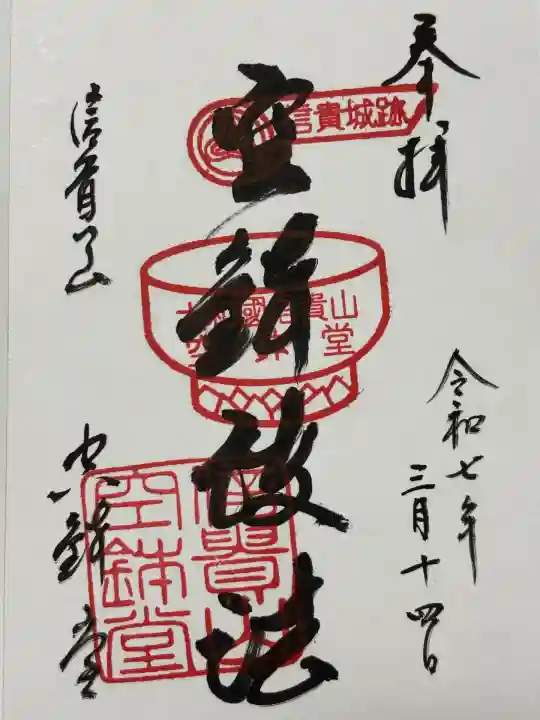 奉拝
令和七年
三月十四日
信貴城跡
空鉢護法
國信貴山
堂
信貴山
空鉢堂
信貴山
空鉢堂